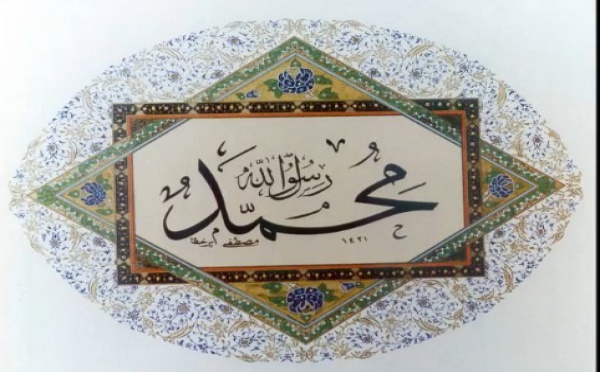 محمد
رسول الله
مصطفى
١٤٢١